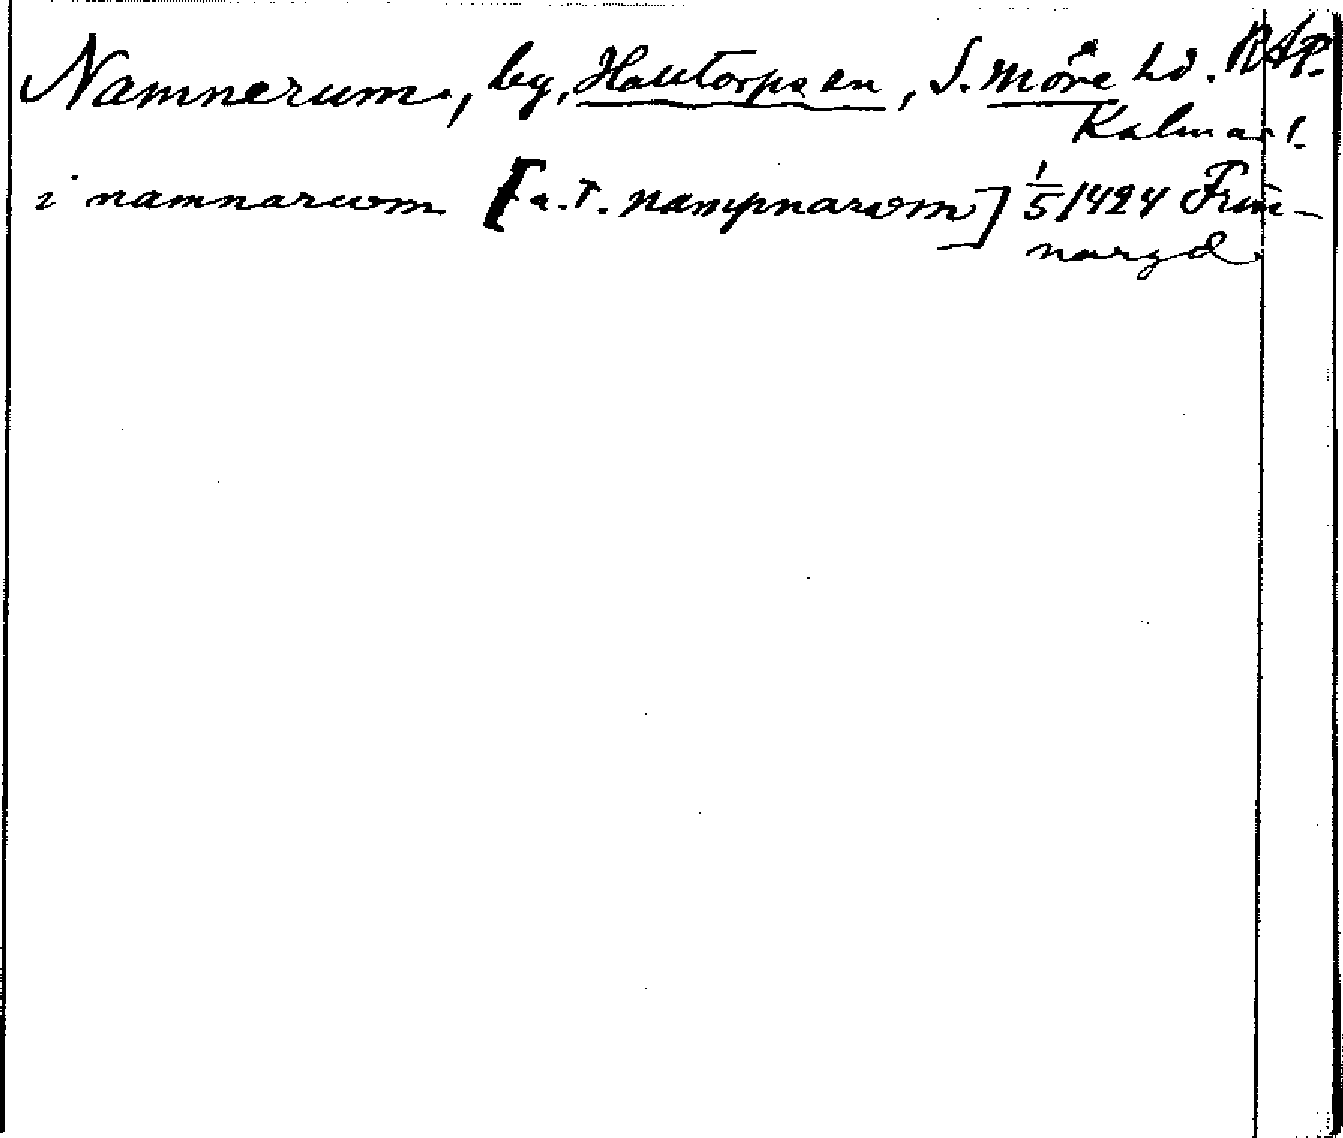 Namnerum, by, Halltorps sn, S. Möre hd. RAP.
Kalmar l.
i namnarwm [a.T. nampnarom] 1/5 1424